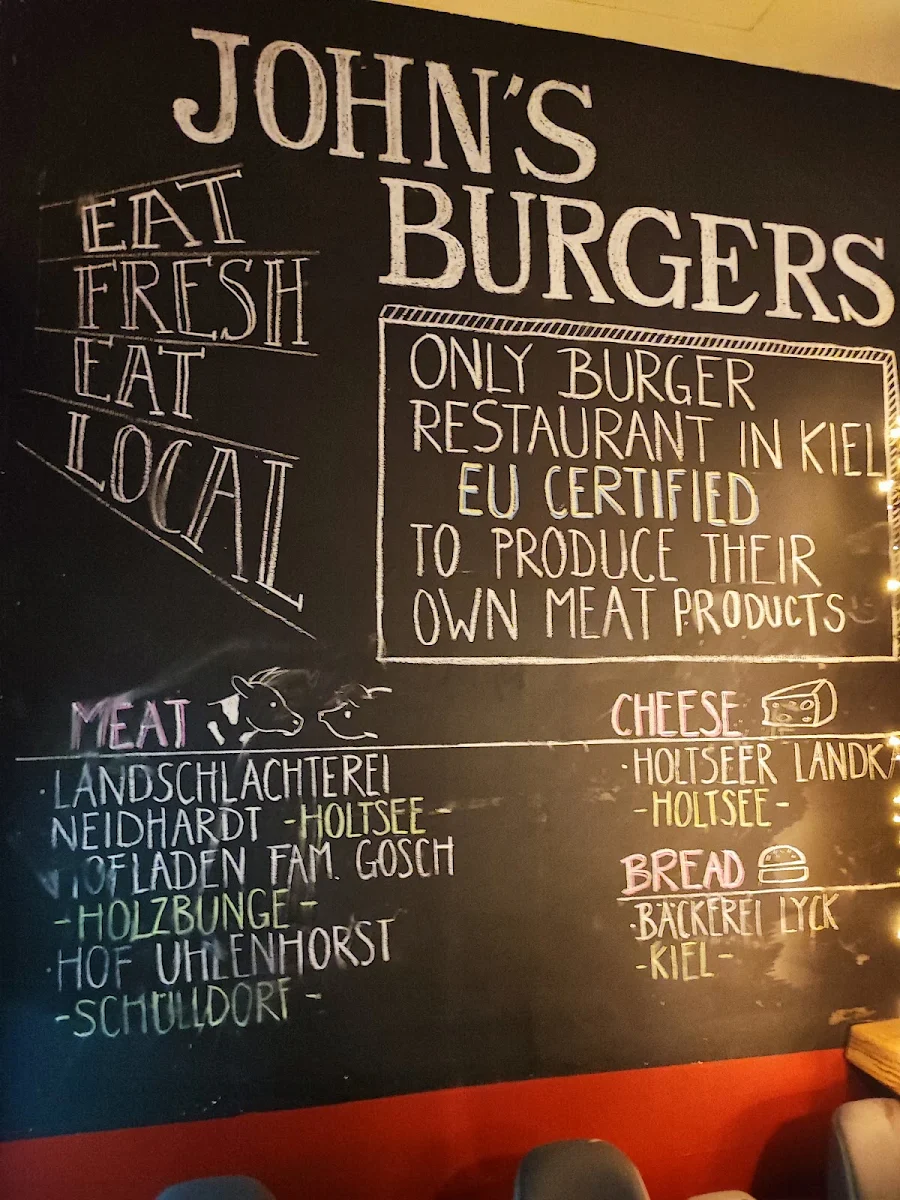 JOHN'S
BURGERS
EAT
FRESH
EAT
LOCAL
ONLY BURGER
RESTAURANT IN KIEL
EU CERTIFIED
TO PRODUCE THEIR
OWN MEAT PRODUCTS
MEAT
·LANDSCHLACHTEREI
NEIDHARDT -HOLTSEE-
HOFLADEN FAM. GOSCH
-HOLZBUNGE-
·HOF UHLENHORST
-SCHÜLLDORF-
CHEESE
·HOLTSEER
-HOLTSEE-
BREAD
·BÄCKEREI LYCK
-KIEL-